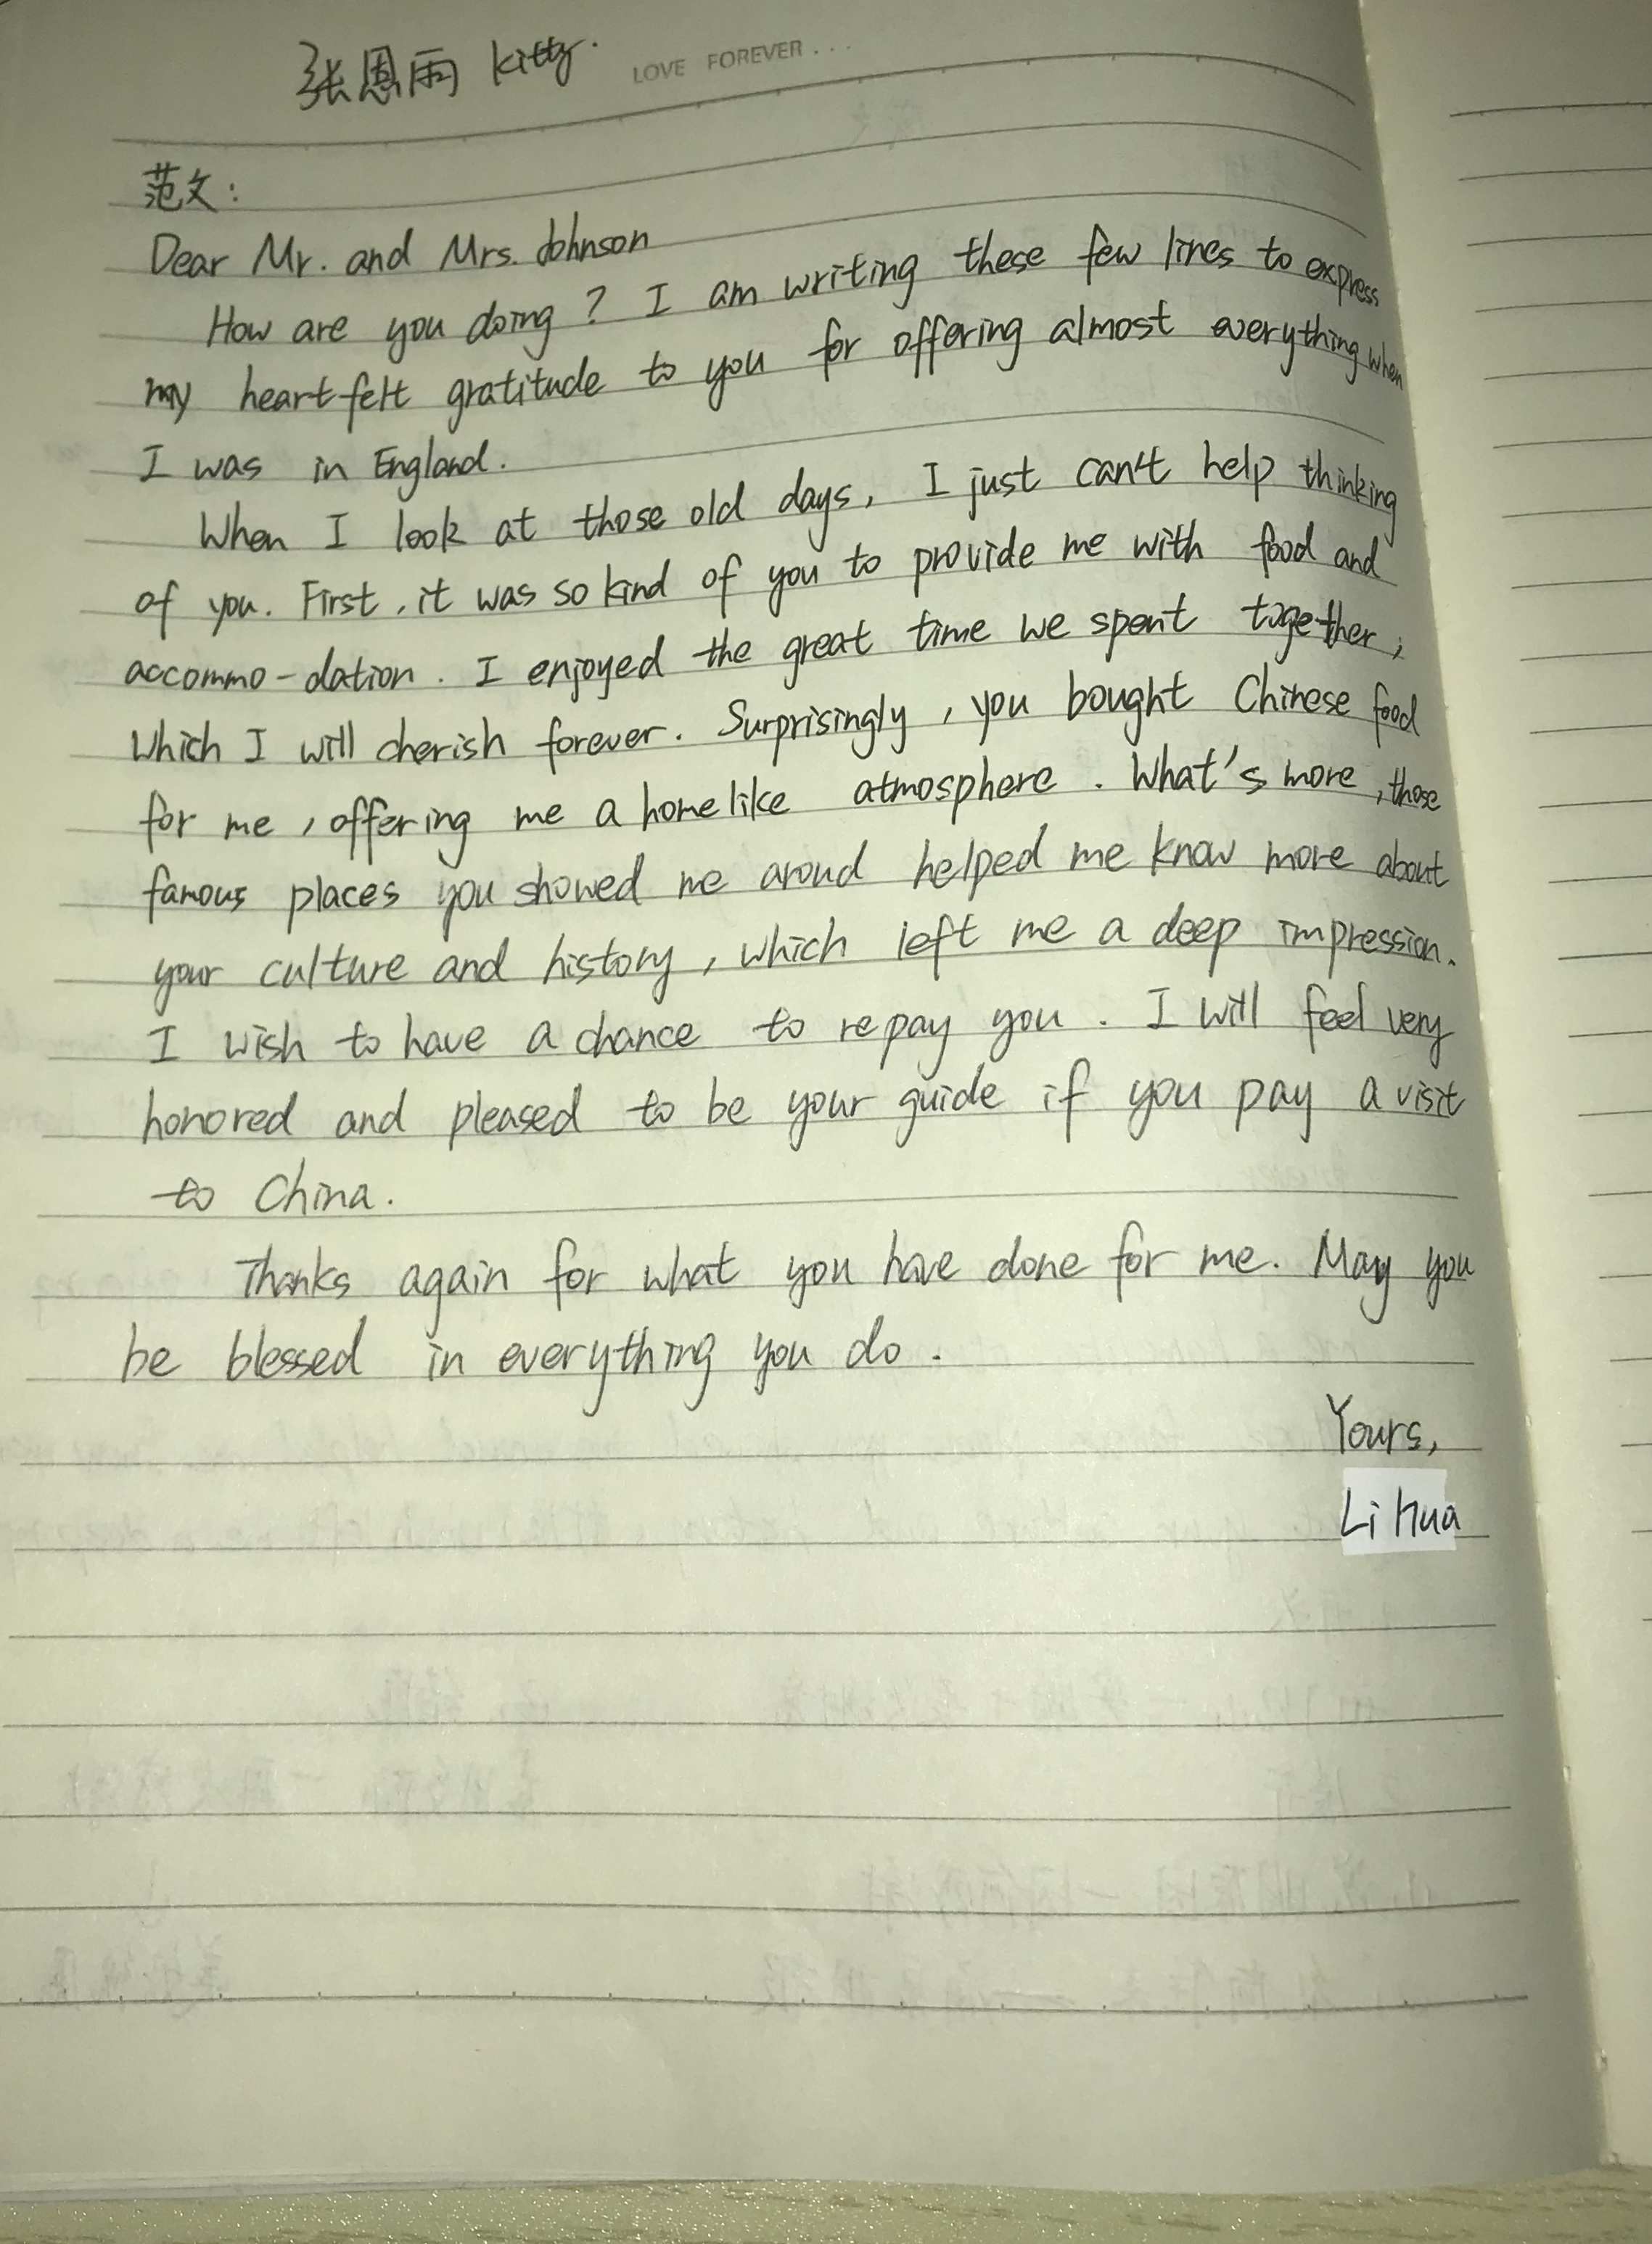 张恩雨 Kitty.
LOVE FOREVER...
范文:
Dear Mr. and Mrs. Johnson
How are you doing? I am writing these few lines to express
my heartfelt gratitude to you for offering almost everything when
I was in England.
When I look at those old days, I just can't help thinking
of you. First, it was so kind of you to provide me with food and
accommo-dation. I enjoyed the great time we spent together,
which I will cherish forever. Surprisingly, you bought Chinese food
for me, offering me a homelike atmosphere. What's more, those
famous places you showed me aroud helped me know more about
your culture and history, which left me a deep impression.
I wish to have a chance to repay you. I will feel very
honored and pleased to be your guide if you pay a visit
to China.
Thanks again for what you have done for me. May you
be blessed in everything you do.
Yours,
Li Hua